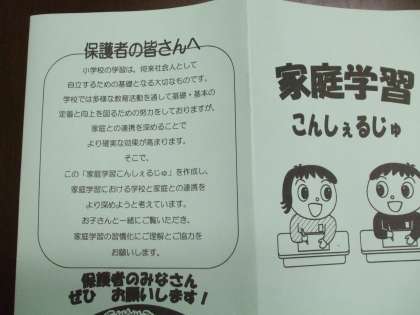 保護者の皆さんへ
小学校の学習は、将来社会人として
自立するための基礎となる大切なものです。
学校では多様な教育活動を通して基礎・基本の
定着と向上を図るための努力をしておりますが、
家庭との連携を深めることで
より確実な効果が高まります。
そこで、
この「家庭学習こんしぇるじゅ」を作成し、
家庭学習における学校と家庭との連携を
より深めようと考えています。
お子さんと一緒にご覧いただき、
家庭学習の習慣化にご理解とご協力を
お願いします。
保護者のみなさん
ぜひ お願いします！
家庭学習
こんしぇるじゅ